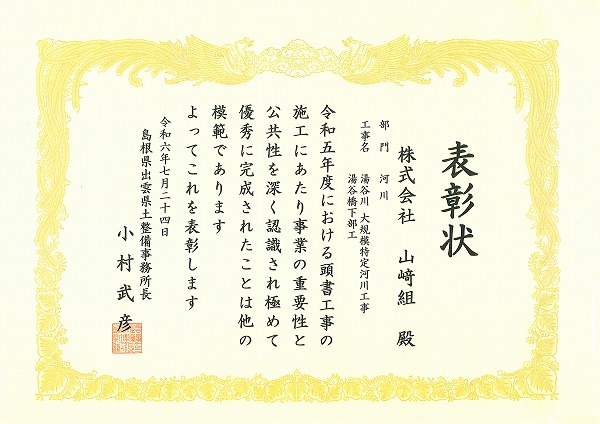 表彰状
株式会社 山﨑組 殿
部門 河川
工事名 湯谷川 大規模特定河川工事
湯谷橋下部工
令和五年度における頭書工事の
施工にあたり事業の重要性と
公共性を深く認識され極めて
優秀に完成されたことは他の
模範であります
よってこれを表彰します
令和六年七月二十四日
島根県出雲県土整備事務所長
小村武彦